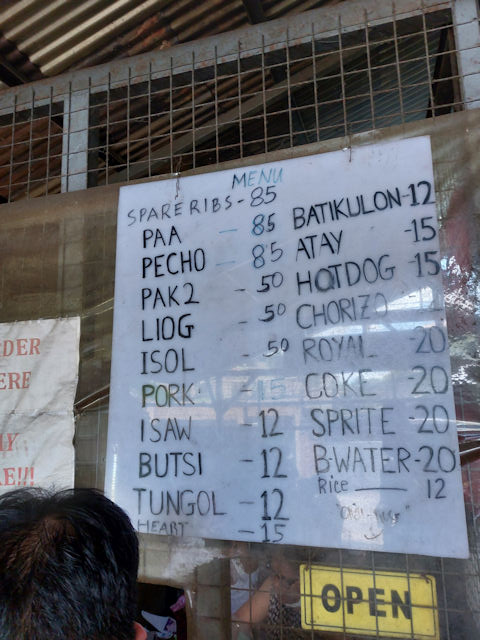 MENU
SPARE RIBS - 85
PAA - 85
PECHO - 85
PAK2 - 50
LIOG - 50
ISOL - 50
PORK - 15
ISAW - 12
BUTSI - 12
TUNGOL - 12
HEART - 15
BATIKULON - 12
ATAY - 15
HOTDOG - 15
CHORIZO
ROYAL - 20
COKE - 20
SPRITE - 20
B-WATER - 20
Rice — 12
DER
ERE
E!!!
OPEN